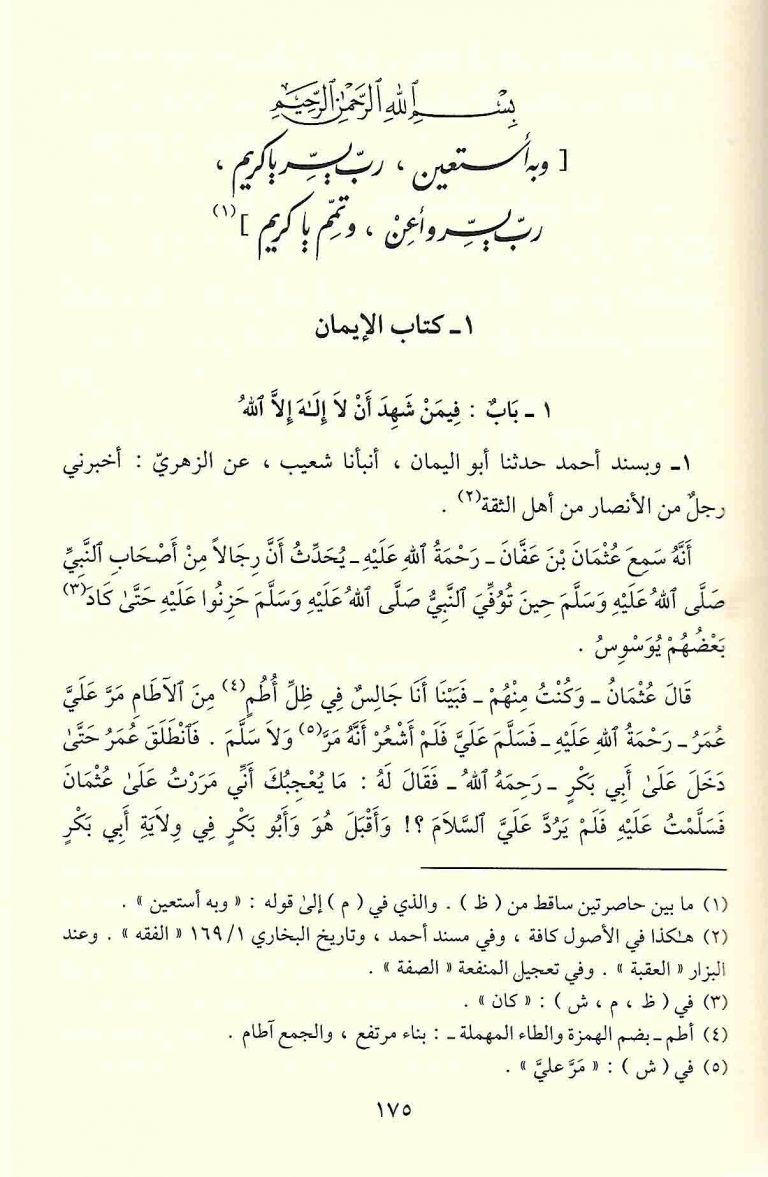 بِسْمِ ٱللهِ ٱلرَّحْمٰنِ ٱلرَّحِيْمِ
[ وبه أستعين ، ربّ يسِّر يا كريم ،
ربّ يسِّر وأعِنْ ، وتمِّم يا كريم ](١)
١ ـ كتاب الإيمان
١ ـ بَابٌ : فِيمَنْ شَهِدَ أَنْ لاَ إِلَـٰهَ إِلاَّ ٱللهُ
١ـ وبسند أحمد حدثنا أبو اليمان ، أنبأنا شعيب ، عن الزهريّ : أخبرني
رجلٌ من الأنصار من أهل الثقة(٢) .
أَنَّهُ سَمِعَ عُثْمَانَ بْنَ عَفَّانَ ـ رَحْمَةُ ٱللهِ عَلَيْهِ ـ يُحَدِّثُ أَنَّ رِجَالاً مِنْ أَصْحَابِ ٱلنَّبِيِّ
صَلَّى ٱللهُ عَلَيْهِ وَسَلَّمَ حِينَ تُوُفِّيَ ٱلنَّبِيُّ صَلَّى ٱللهُ عَلَيْهِ وَسَلَّمَ حَزِنُوا عَلَيْهِ حَتَّىٰ كَادَ(٣)
بَعْضُهُمْ يُوَسْوِسُ .
قَالَ عُثْمَانُ ـ وَكُنْتُ مِنْهُمْ ـ فَبَيْنَا أَنَا جَالِسٌ فِي ظِلِّ أُطُمٍ(٤) مِنَ ٱلآطَامِ مَرَّ عَلَيَّ
عُمَرُ ـ رَحْمَةُ ٱللهِ عَلَيْهِ ـ فَسَلَّمَ عَلَيَّ فَلَمْ أَشْعُرْ أَنَّهُ مَرَّ(٥) وَلاَ سَلَّمَ . فَٱنْطَلَقَ عُمَرُ حَتَّىٰ
دَخَلَ عَلَىٰ أَبِي بَكْرٍ ـ رَحِمَهُ ٱللهُ ـ فَقَالَ لَهُ : مَا يُعْجِبُكَ أَنِّي مَرَرْتُ عَلَىٰ عُثْمَانَ
فَسَلَّمْتُ عَلَيْهِ فَلَمْ يَرُدَّ عَلَيَّ ٱلسَّلاَمَ ؟! وَأَقْبَلَ هُوَ وَأَبُو بَكْرٍ فِي وِلاَيَةِ أَبِي بَكْرٍ
(١) ما بين حاصرتين ساقط من ( ظ ) . والذي في ( م ) إلىٰ قوله : « وبه أستعين » .
(٢) هـٰكذا في الأصول كافة ، وفي مسند أحمد ، وتاريخ البخاري ١/ ١٦٩ « الفقه » . وعند
البزار « العقبة » . وفي تعجيل المنفعة « الصفة » .
(٣) في ( ظ ، م ، ش ) : « كان » .
(٤) أطم ـ بضم الهمزة والطاء المهملة ـ : بناء مرتفع ، والجمع آطام .
(٥) في ( ش ) : « مَرَّ عليَّ » .
١٧٥